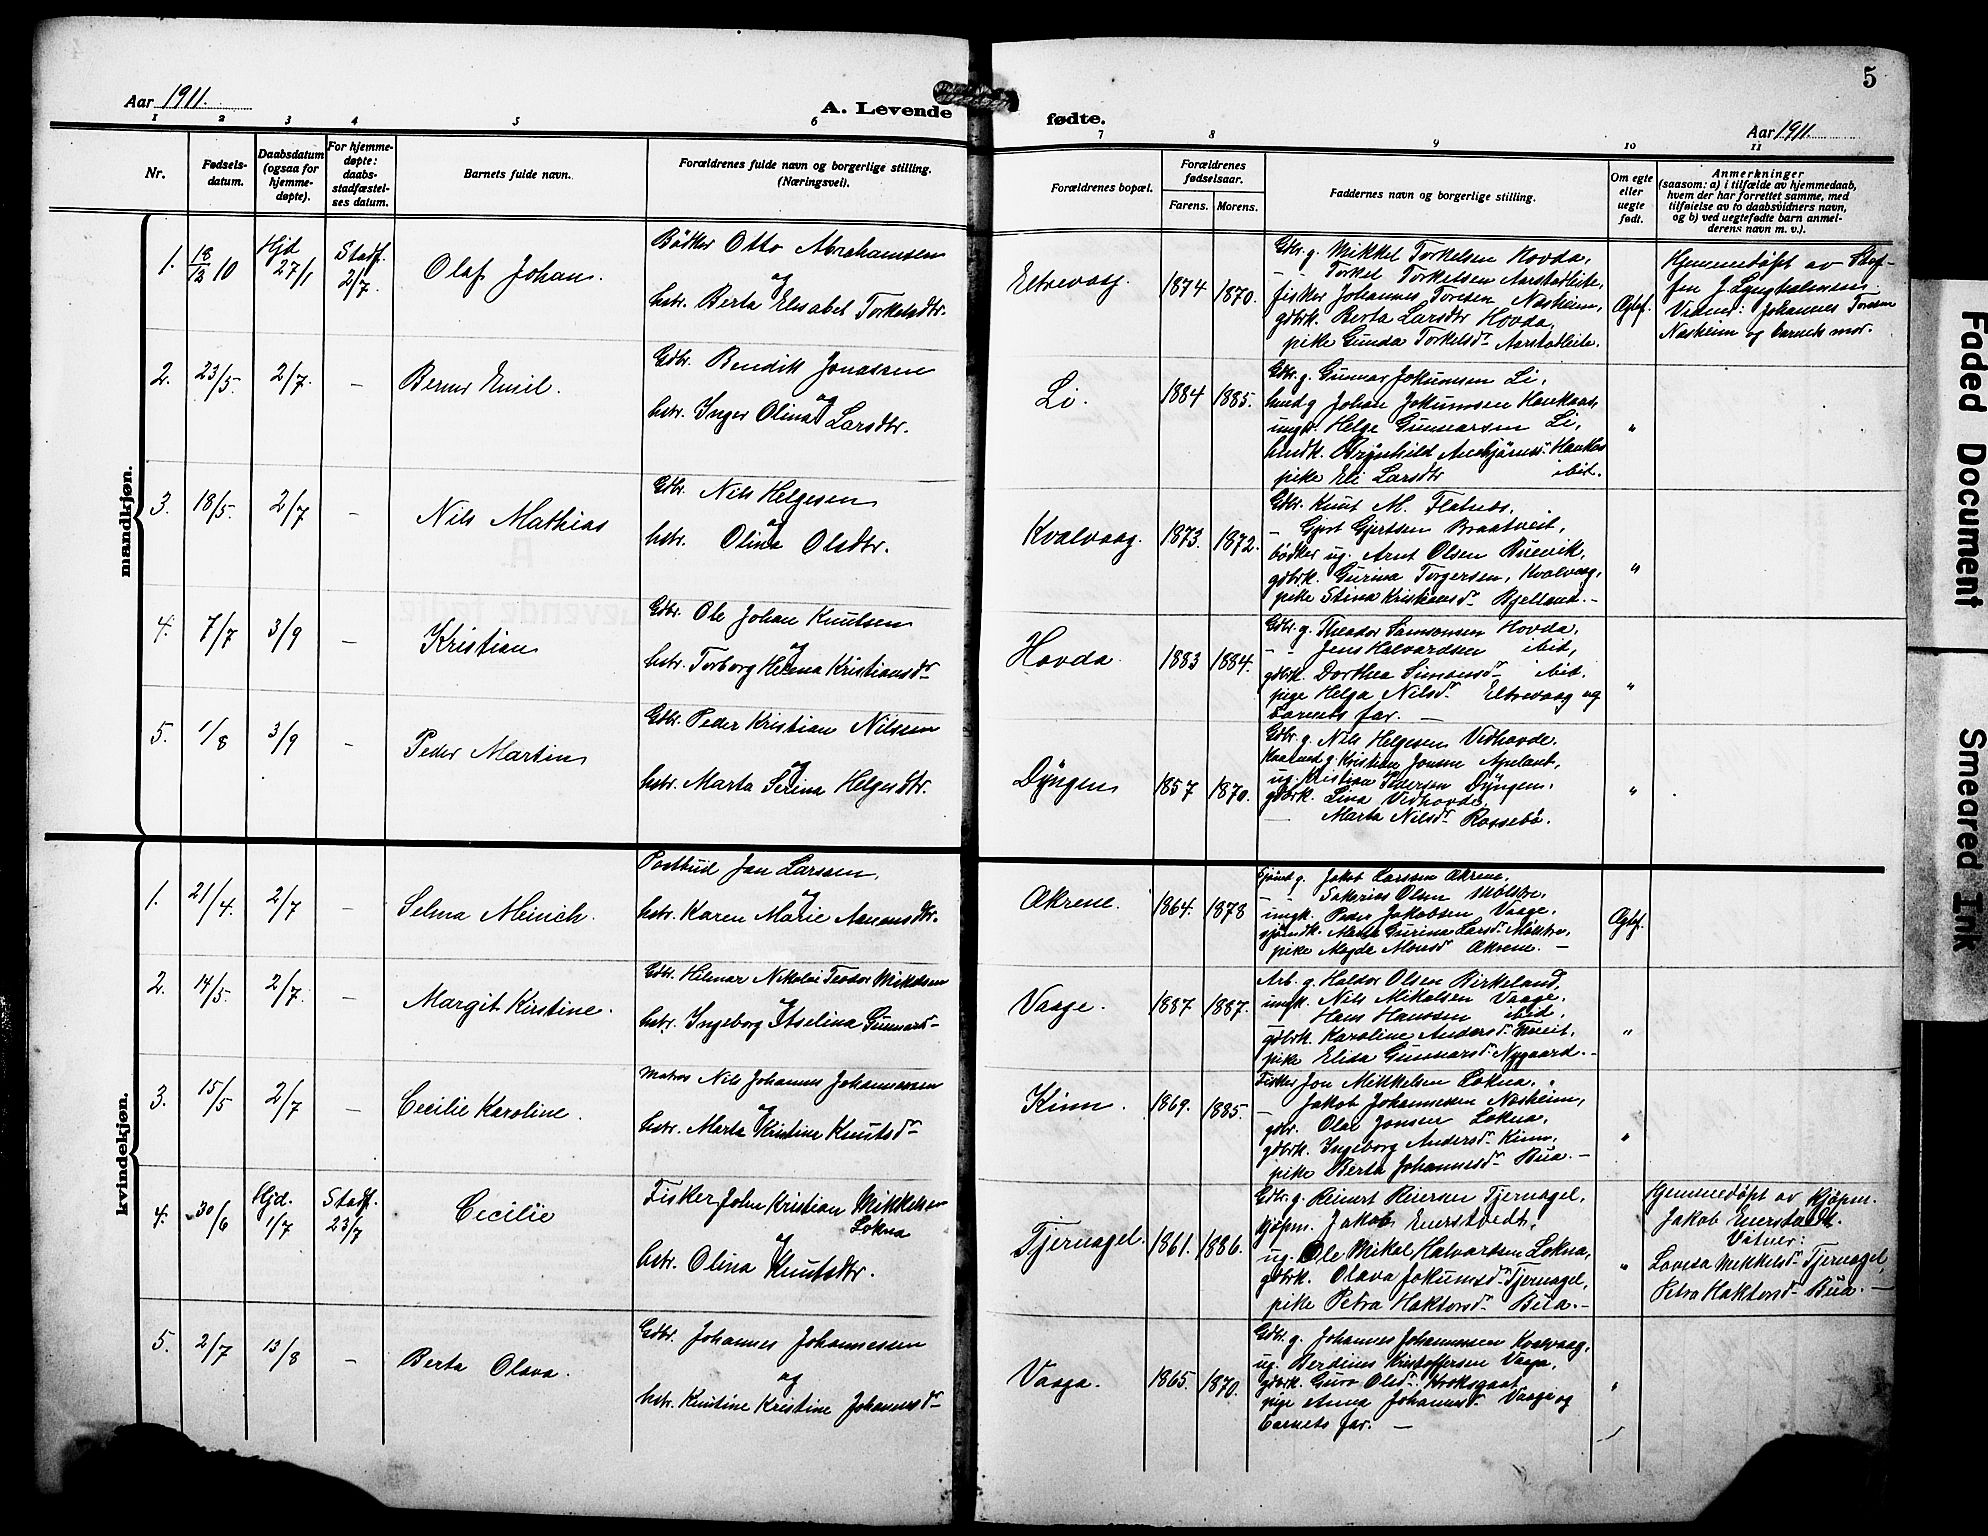 5
Aar 1911.
A. Levende fødte.
Aar 1911.
1 2 3 4 5 6 7 8 9 10 11
Nr.
Fødsels-
datum.
Daabsdatum
(ogsaa for
hjemme-
døpte).
For hjemme-
døpte:
daabs-
stadfæstel-
ses datum.
Barnets fulde navn.
Forældrenes fulde navn og borgerlige stilling.
(Næringsvei).
Forældrenes bopæl.
Forældrenes
fødselsaar.
Farens. Morens.
Faddernes navn og borgerlige stilling.
Om egte
eller
uegte
født.
Anmerkninger
(saasom: a) i tilfælde av hjemmedaab,
hvem der har forrettet samme, med
tilføielse av to daabsvidners navn,
og b) ved uegtefødte barn anmel-
derens navn m. v.).
mandkjøn.
1. 18/12 10
Hjd.
27/1
Stadf.
2/7.
Olaf Johan.
Bödker Otto Abrahamsen
og
hstr. Berta Elisabet Torkelsdtr.
Eltrevaag. 1874 1870.
Gbr. g. Mikkel Torkelsen Hovda,
- - Torkel Torkelsen Aarstadleite,
fisker Johannes Toresen Næsheim,
gdbrk. Berta Larsdtr Hovda,
pike Gunda Torkelsdr Aarstadleite.
Ægtef.
Hjemmedöpt av Stef-
fen J. Lyngholmen.
Vidner: Johannes Toresen
Næsheim og barnets mor.
2. 23/5. 2/7. -
Berner Emil.
Gdbr. Bendik Jonassen
og
hstr. Inger Olina Larsdtr.
Li. 1884 1885.
Gdbr. g. Gunnar Jokumsen Li,
Johan Jokumsen
ungk. Helge Gunnarsen Li,
Brynhild
pike Eli Larsdtr ibid.
"
3. 18/5. 2/7 -
Nils Mathias
Gdbr. Nils Helgesen
og
hstr. Olina Olsdtr.
Kvalvaag. 1873. 1872.
Gdbr. Knut M. Flatnes,
- Gjert Gjertsen Braatveit,
bödker ug. Arnt Olsen Buevik,
gdbrk. Gurina Torgersen, Kvalvaag,
pike Stina Kristiansdr Bjelland. -
"
4. 7/7 3/9 -
Kristian
Gdbr. Ole Johan Knutsen
og
hstr. Torborg Helma Kristiansdr
Hovda. 1883 1884.
Gdbr. g. Theodor Samsonsen Hovda,
- Jens Halvardsen ibid,
gdbrk. Dorthea Simonsdr ibid.
pige Helga Nilsdr Eltrevaag og
barnets far. -
"
5. 1/8 3/9 -
Peder Martin
Gdbr. Peder Kristian Nilssen
og
hstr. Marta Serina Helgesdtr.
Dyngen 1857 1870.
Gdbr. g. Nils Helgesen Vedhovde,
g. Kristian Jonsen Apeland,
ug. Kristian Pedersen Dyngen,
gdbrk. Lina Vedhovde,
- Marta Nilsdr Rossebö.
"
kvindekjøn.
1. 21/4. 2/7 -
Selma Meinich.
Postbud Jan Larssen,
og
hstr. Karen Marie Aanonsdtr.
Økrene. 1864. 1878
g. Jakob Larssen Økrene,
- - Sakarias Olsen
ungk. Peder Jakobsen Vaage,
Marta Gurina Larsdr
pike Magda Monsdr Økrene. -
Ægtef.
2. 14/5. 2/7. -
Margit Kirstine.
Gdbr. Hilmar Nikolai Teodor Mikelsen
og
hstr. Ingeborg Etselina Gunnarsdr
Vaage. 1887. 1887.
Arb. g. Haldor Olsen Birkeland,
ungk. Nils Mikalsen Vaage.
Hans Hanssen ibid.
gdbrk. Karoline Andersdr Tveit,
pike Elida Gunnarsdr Nygaard. -
"
3. 15/5 2/7 -
Cecilie Karoline.
Matros Nils Johannes Johannessen
og
hstr. Marta Kristina Knutsdr
Kinn. 1869. 1885.
Fisker Jon Mikkelsen Lokna.
- Jakob Johannesen Næsheim,
gdbr. Olav Jonsen Lokna,
gdbrk. Ingeborg Andersdr Kinn,
pike Berta Johannesdr Bua. -
"
4. 30/6
Hjd.
1/7
Stadf.
23/7
Cecilie
Fisker John Kristian Mikkelsen
Lokna
og
hstr. Olina Knutsdtr.
Tjernagel. 1861. 1886.
Gdbr. g. Reinert Reiersen Tjernagel,
kjöpm. Jakob Enerstvedt,
ug. Ole Mikal Halvardsen Lokna,
gdbrk. Olava Jokumsdr Tjernagel,
pike Petra Haktorsdr Bua. -
"
Hjemmedöpt av kjöpm.
Jakob Enerstvedt.
Vidner:
Lovisa Mikkelsdr Tjernagel,
Petra Haktorsdr Bua. -
5. 2/7 13/8 -
Berta Olava.
Gdbr. Johannes Johannessen
og
hstr. Knutine Kristine Johannesdr
Vaage. 1865. 1870.
Gdbr. g. Johannes Johannessen Kvalvaag,
ug. Berdinus Kristoffersen Vaage,
gdbrk. Guro Olsdr Kroksgaat,
pige Anna Johannesdr Vaage og
barnets far. -
"
Faded Document
Smeared Ink